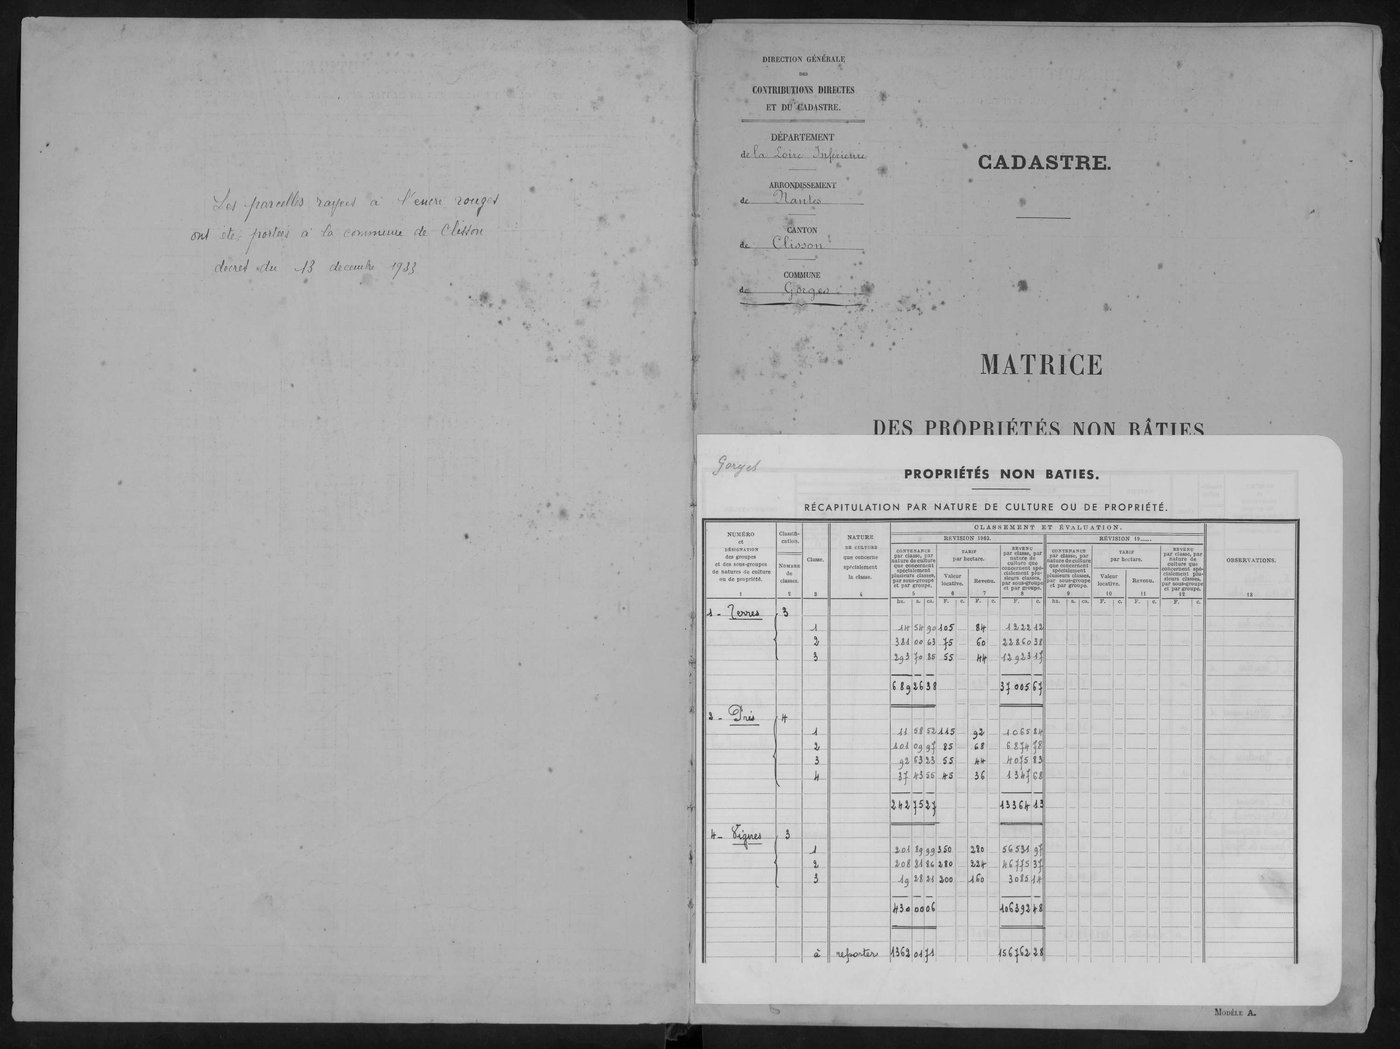 Les parcelles rayées à l'encre rouges
ont été portées à la commune de Clisson
décret du 13 décembre 1933
DIRECTION GÉNÉRALE
DES
CONTRIBUTIONS DIRECTES
ET DU CADASTRE.
DÉPARTEMENT
de la Loire Inférieure
ARRONDISSEMENT
de Nantes
CANTON
de Clisson
COMMUNE
de Gorges
CADASTRE.
MATRICE
DES PROPRIÉTÉS NON BÂTIES
Gorges
PROPRIÉTÉS NON BATIES.
RÉCAPITULATION PAR NATURE DE CULTURE OU DE PROPRIÉTÉ.
NUMÉRO
et
DÉSIGNATION
des groupes
et des sous-groupes
de natures de culture
ou de propriété.
1
Classifi-
cation.
NOMBRE
de
classes.
2
Classe.
3
NATURE
DE CULTURE
que concerne
spécialement
la classe.
4
CLASSEMENT ET ÉVALUATION.
REVISION 1962.
CONTENANCE
par classe, par
nature de culture
que concernent
spécialement
plusieurs classes,
par sous-groupe
et par groupe.
5
TARIF
par hectare.
Valeur
locative.
6
Revenu.
7
REVENU
par classe, par
nature de
culture que
concernent spé-
cialement plu-
sieurs classes,
par sous-groupe
et par groupe.
8
RÉVISION 19.....
CONTENANCE
par classe, par
nature de culture
que concernent
spécialement
plusieurs classes,
par sous-groupe
et par groupe.
9
TARIF
par hectare.
Valeur
locative.
10
Revenu.
11
REVENU
par classe, par
nature de
culture que
concernent spé-
cialement plu-
sieurs classes,
par sous-groupe
et par groupe.
12
OBSERVATIONS.
13
ha. a. ca. F. c. F. c. F. c. ha. a. ca. F. c. F. c. F. c.
1 - Terres 3
1 14 54 90 105 84 1222 12
2 381 00 63 75 60 22860 38
3 293 70 85 55 44 12923 17
689 26 38 37005 67
2 - Prés 4
1 11 58 52 115 92 1065 84
2 101 09 97 85 68 6874 78
3 92 63 23 55 44 4075 83
4 37 43 55 45 36 1347 68
242 75 27 13364 13
4 - Vignes 3
1 201 89 99 350 280 56531 97
2 208 81 86 280 224 46775 37
3 19 28 21 200 160 3085 14
430 00 06 106392 48
à reporter 1362 01 71 156762 28
MODÈLE A.